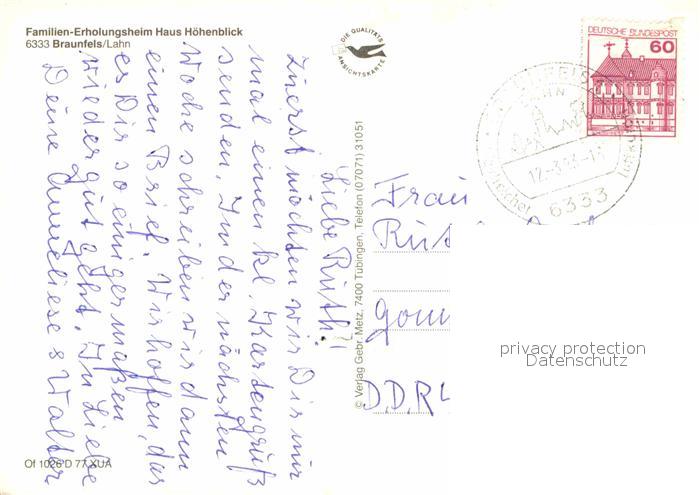 Familien-Erholungsheim Haus Höhenblick
6333 Braunfels/Lahn
DIE QUALITÄTS
ANSICHTSKARTE
DEUTSCHE BUNDESPOST
60
6333
Liebe Ruth!
Zuerst möchten wir Dir nur
mal einen kl. Kartengruß
senden, In der nächsten
Woche schreiben wir dann
einen Brief. Wir hoffen, das
es Dir so einigermaßen
wieder gut geht. In Liebe
Deine Anneliese & Walter
© Verlag Gebr. Metz, 7400 Tübingen, Telefon (07071) 31051
Frau
DDR
Of 1026 D 77 XUA
privacy protection
Datenschutz